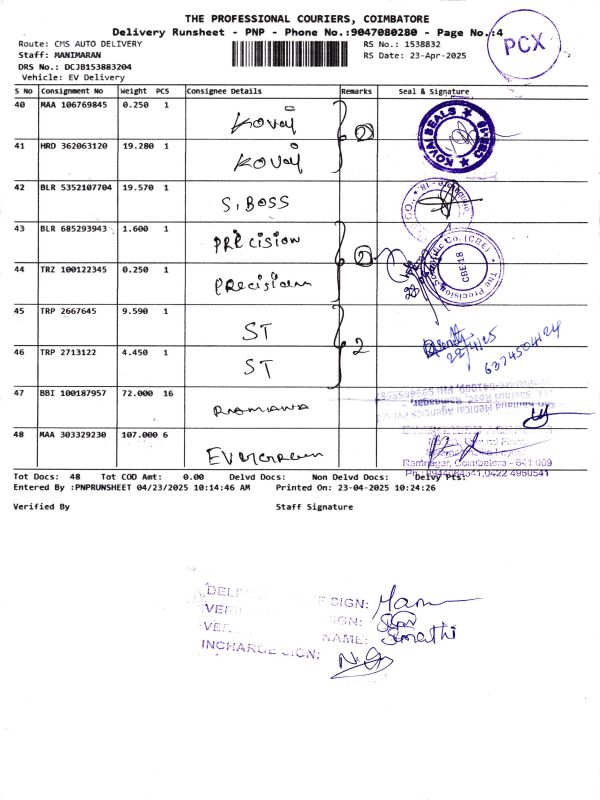 THE PROFESSIONAL COURIERS, COIMBATORE
Delivery Runsheet - PNP - Phone No.:9047080280 - Page No.:4
PCX
Route: CMS AUTO DELIVERY
RS No.: 1538832
Staff: MANIMARAN
RS Date: 23-Apr-2025
DRS No.: DCJB153883204
Vehicle: EV Delivery
S No Consignment No Weight PCS Consignee Details Remarks Seal & Signature
40 MAA 106769845 0.250 1 Kovai 2
KOVAI SEALS CBE-18
41 HRD 362063120 19.280 1 Kovai
42 BLR 5352107704 19.570 1 S. BOSS
43 BLR 685293943 1.600 1 Precision 2
The Precision Scientific Co. (CBE) CBE-18
44 TRZ 100122345 0.250 1 Precision
45 TRP 2667645 9.590 1 ST 2
6374504124
46 TRP 2713122 4.450 1 ST
47 BBI 100187957 72.000 16 Ramana
48 MAA 303329230 107.000 6 Evergreen
Ramnagar, Coimbatore - 641 009
Tot Docs: 48 Tot COD Amt: 0.00 Delvd Docs: Non Delvd Docs: Delvy Pts:
Entered By :PNPRUNSHEET 04/23/2025 10:14:46 AM Printed On: 23-04-2025 10:24:26
Verified By Staff Signature
SIGN: Mani
SIGN:
NAME: Sumathi
INCHARGE SIGN: